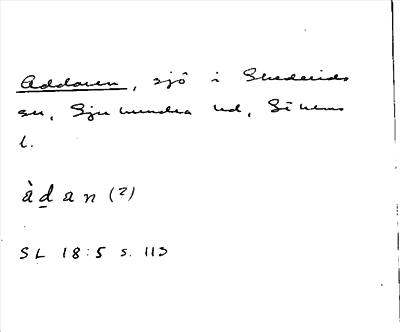 Addaren, sjö i Skederids
sn, Sjuhundra hd, Sthlms
l.
àd̲an (?)
SL 18:5 s. 113